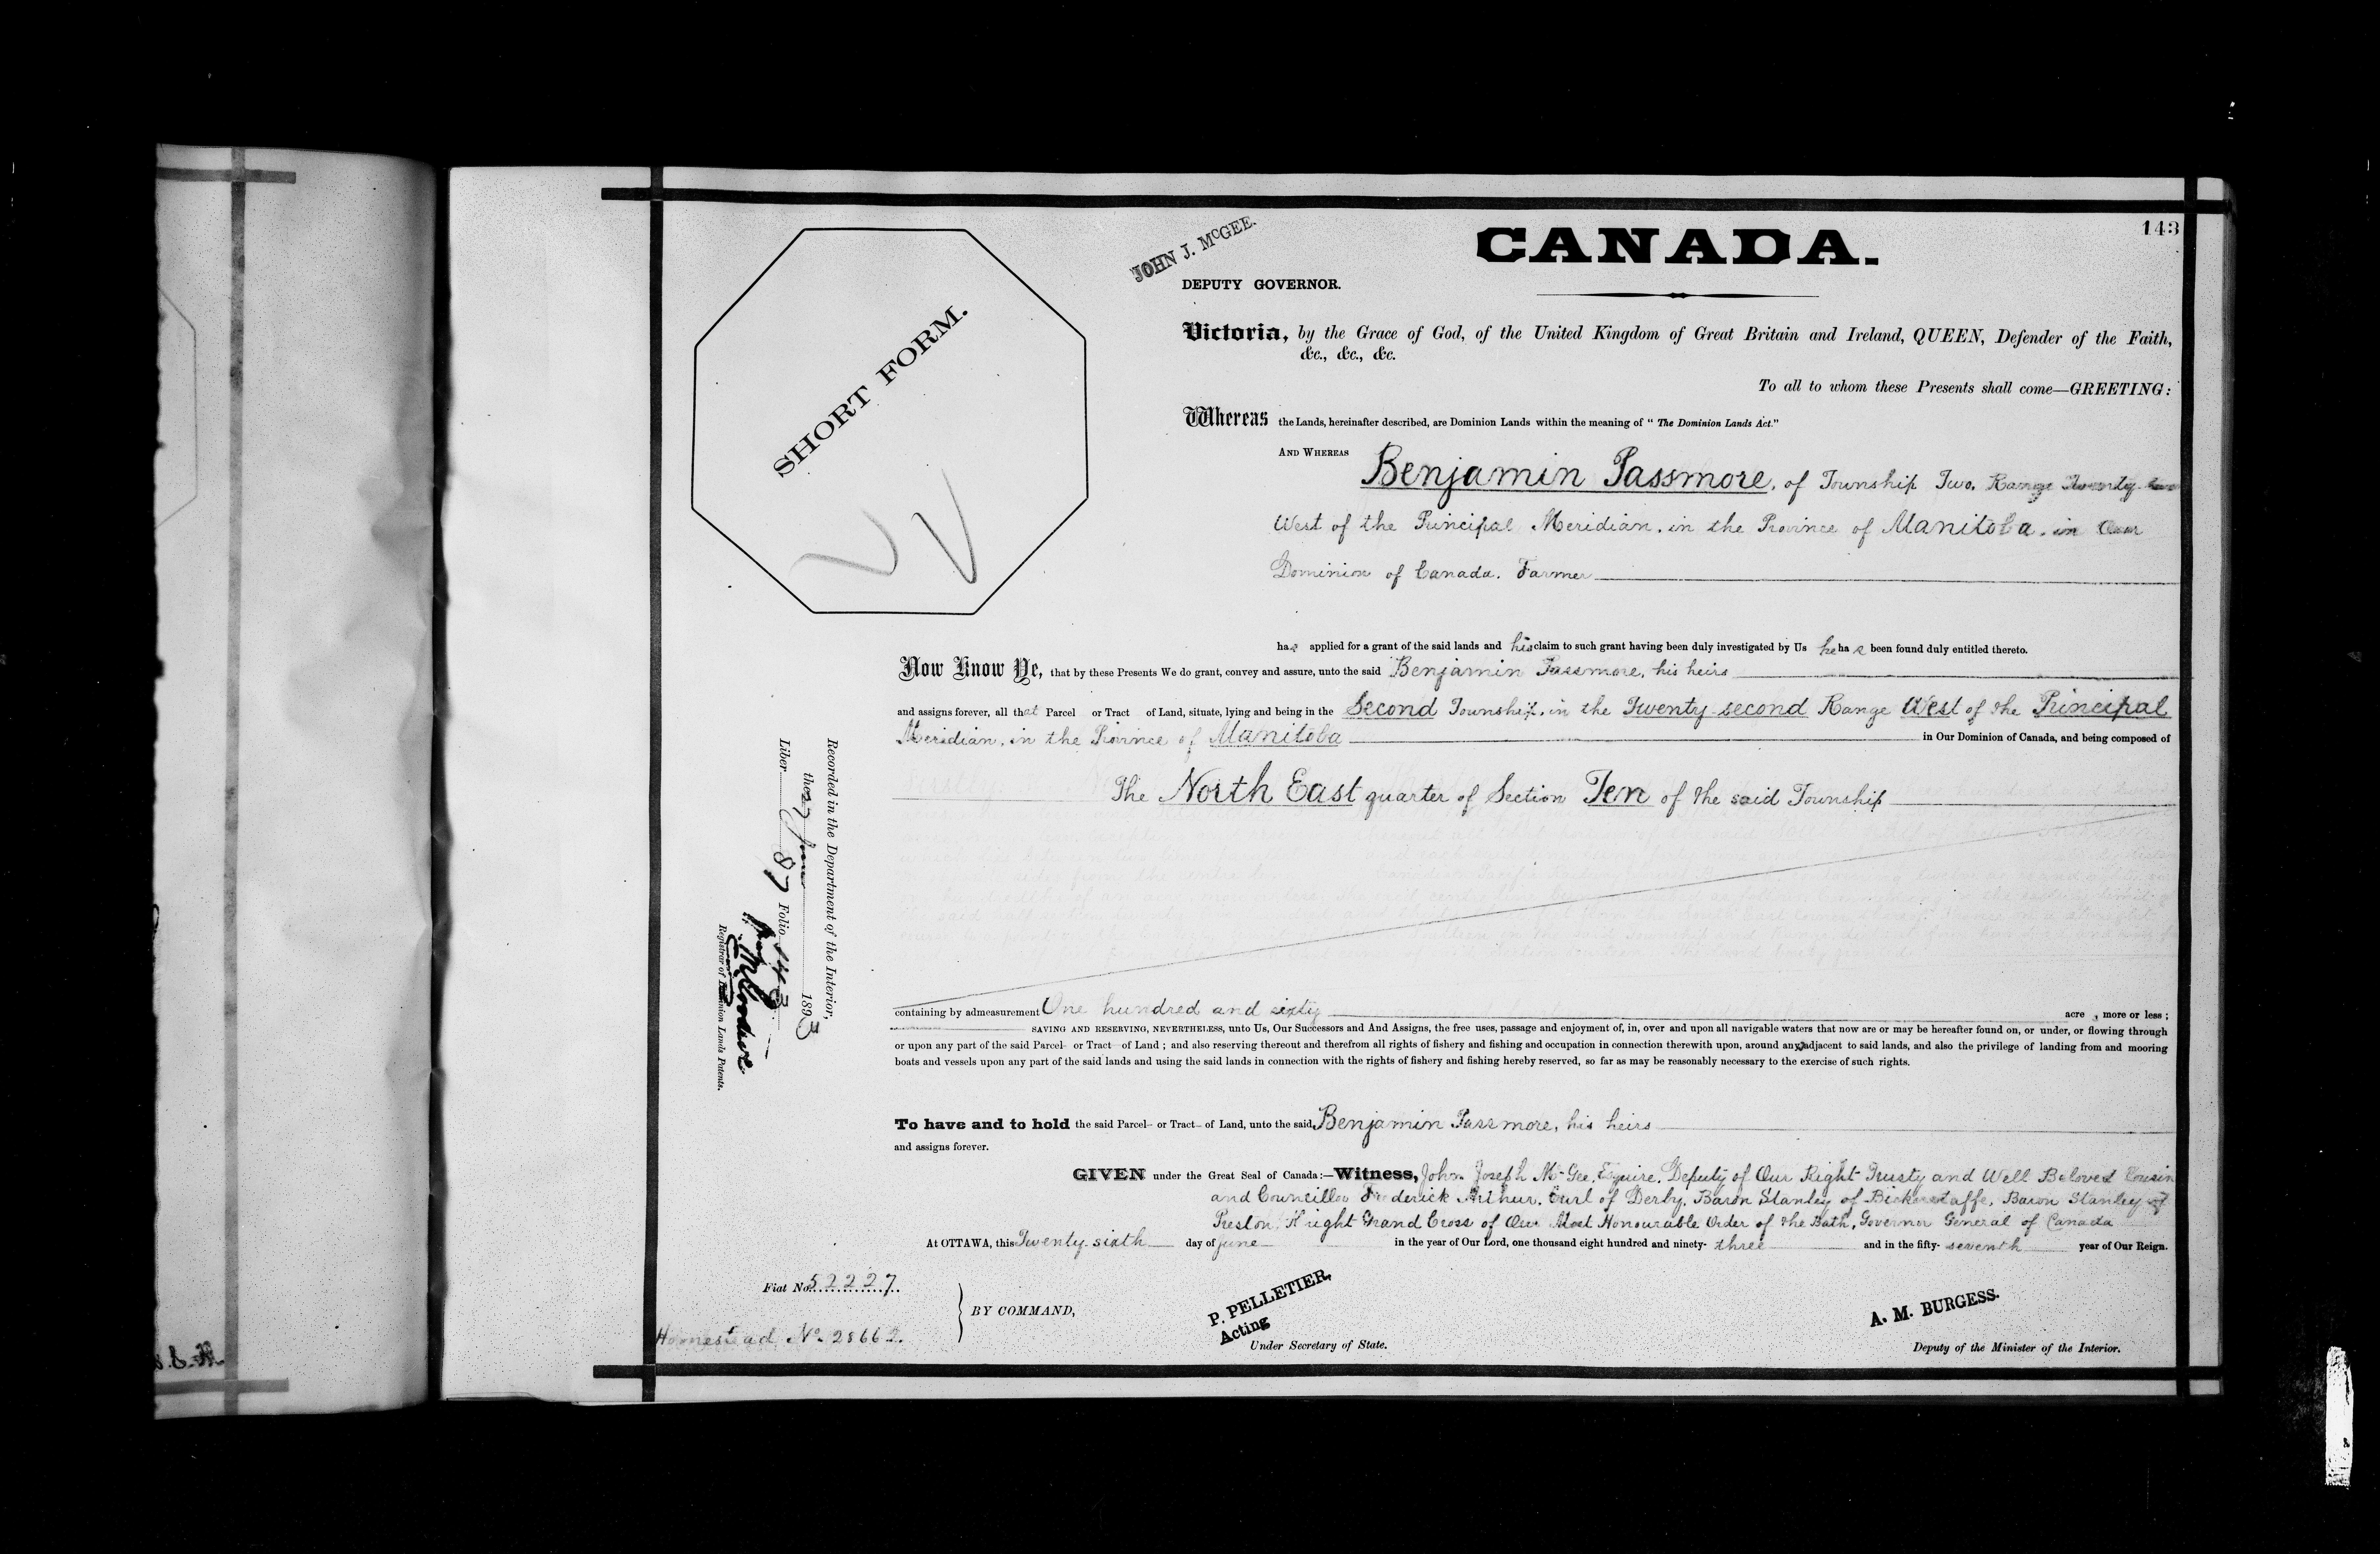 143
CANADA.
JOHN J. McGEE.
DEPUTY GOVERNOR.
SHORT FORM.
Victoria, by the Grace of God, of the United Kingdom of Great Britain and Ireland, QUEEN, Defender of the Faith,
&c., &c., &c.
To all to whom these Presents shall come—GREETING:
Whereas the Lands, hereinafter described, are Dominion Lands within the meaning of "The Dominion Lands Act."
AND WHEREAS Benjamin Passmore, of Township Two, Range Twenty two
West of the Principal Meridian, in the Province of Manitoba, in Our
Dominion of Canada. Farmer
has applied for a grant of the said lands and his claim to such grant having been duly investigated by Us he has been found duly entitled thereto.
Now Know Ye, that by these Presents We do grant, convey and assure, unto the said Benjamin Passmore, his heirs
and assigns forever, all that Parcel or Tract of Land, situate, lying and being in the Second Township, in the Twenty second Range West of the Principal
Meridian, in the Province of Manitoba in Our Dominion of Canada, and being composed of
The North East quarter of Section Ten of the said Township
containing by admeasurement One hundred and sixty acre , more or less;
SAVING AND RESERVING, NEVERTHELESS, unto Us, Our Successors and And Assigns, the free uses, passage and enjoyment of, in, over and upon all navigable waters that now are or may be hereafter found on, or under, or flowing through
or upon any part of the said Parcel or Tract of Land; and also reserving thereout and therefrom all rights of fishery and fishing and occupation in connection therewith upon, around and adjacent to said lands, and also the privilege of landing from and mooring
boats and vessels upon any part of the said lands and using the said lands in connection with the rights of fishery and fishing hereby reserved, so far as may be reasonably necessary to the exercise of such rights.
To have and to hold the said Parcel or Tract of Land, unto the said Benjamin Passmore, his heirs
and assigns forever.
GIVEN under the Great Seal of Canada:—Witness, John Joseph McGee, Esquire, Deputy of Our Right Trusty and Well Beloved Cousin
and Councillor Frederick Arthur, Earl of Derby, Baron Stanley of Bickerstaffe, Baron Stanley of
Preston, Knight Grand Cross of Our Most Honourable Order of the Bath, Governor General of Canada
At OTTAWA, this Twenty sixth day of June in the year of Our Lord, one thousand eight hundred and ninety- three and in the fifty- seventh year of Our Reign.
Fiat No. 52227
Homestead No. 28662.
BY COMMAND,
P. PELLETIER,
Acting
Under Secretary of State.
A. M. BURGESS.
Deputy of the Minister of the Interior.
Recorded in the Department of the Interior,
the 27 June 1893
Liber 87 Folio 143
Registrar of Dominion Lands Patents.